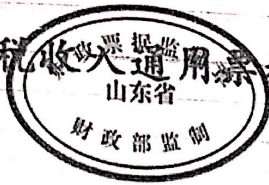 税收入通用票
财政票据监
山东省
财政部监制